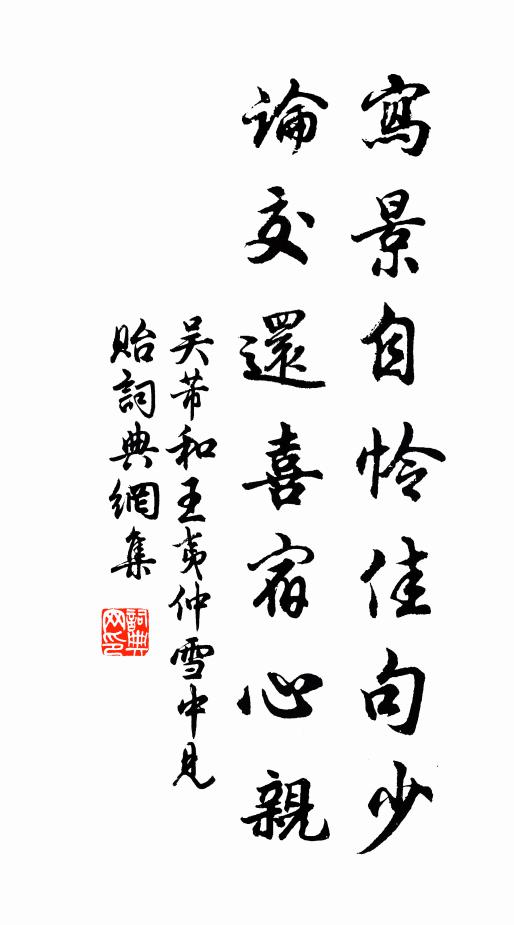 寫景自怜佳句少
論交還喜宿心親
吴芾和王夷仲雪中見
貽詞典網集
詞典網印